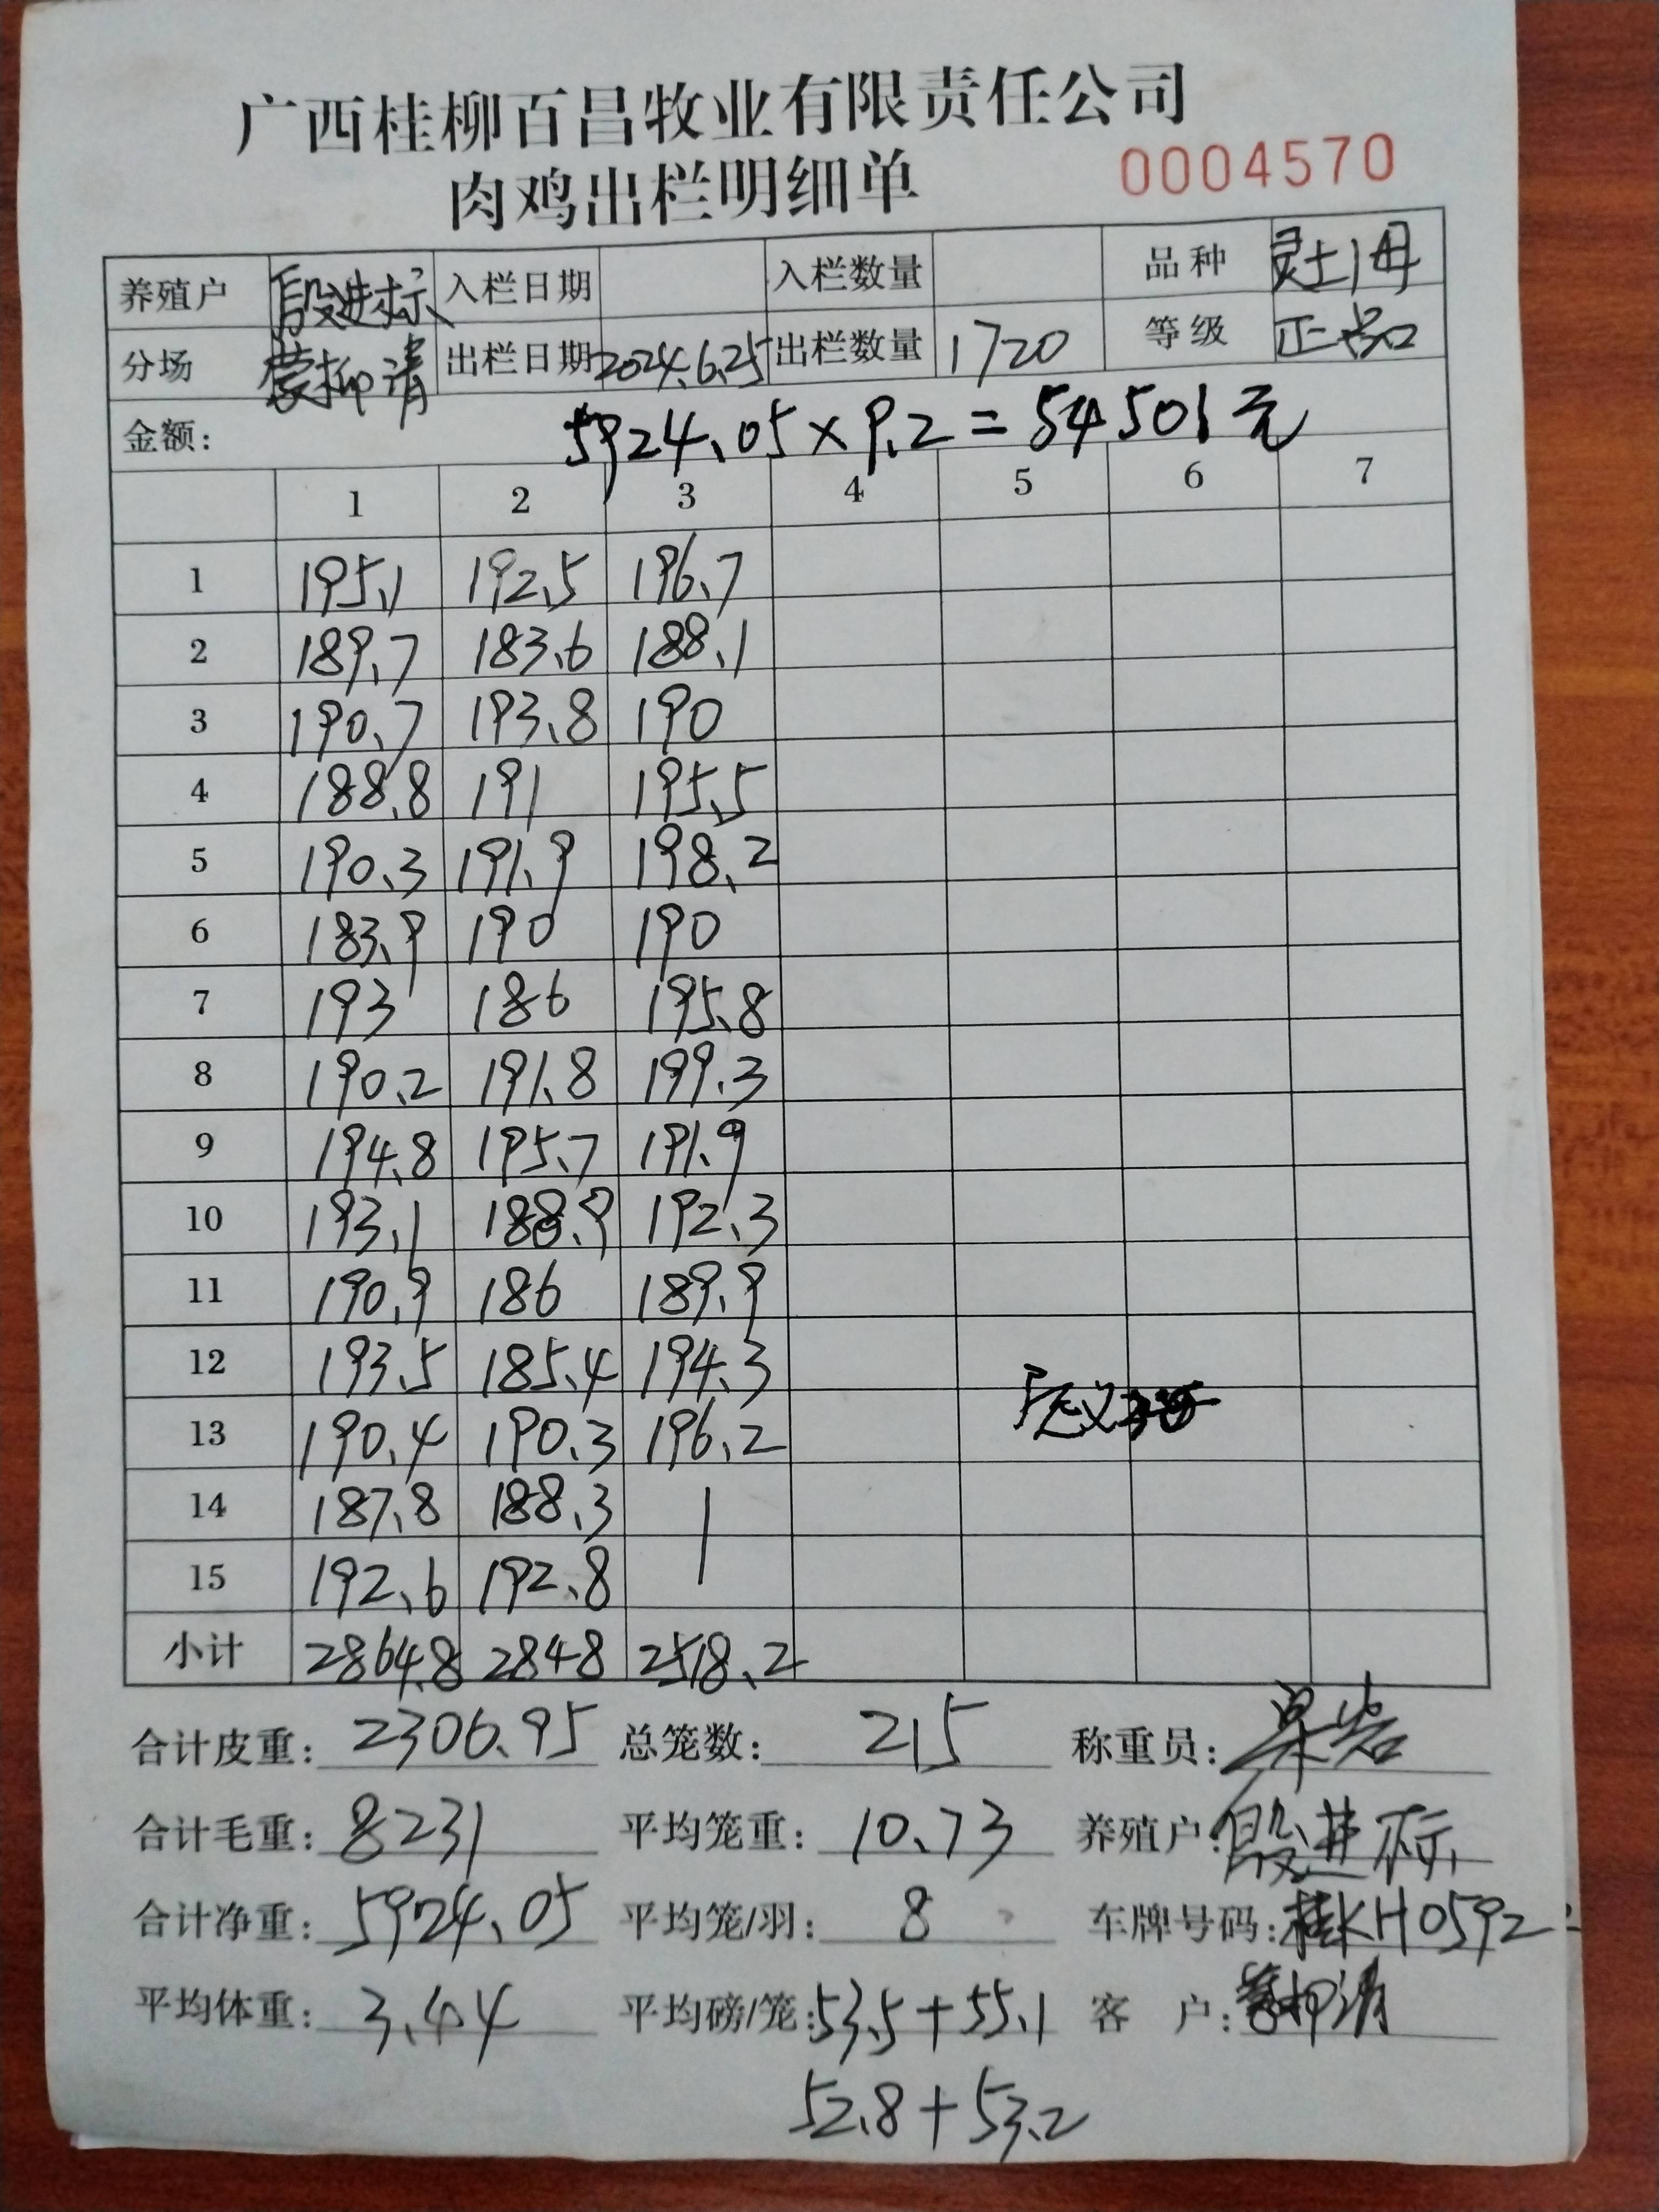 广西桂柳百昌牧业有限责任公司
肉鸡出栏明细单 0004570
养殖户 段进标 入栏日期 入栏数量 品种 灵土1母
分场 蒙柳清 出栏日期 2024.6.25 出栏数量 1720 等级 正品
金额: 5924.05×9.2=54501元
1 2 3 4 5 6 7
1 195.1 192.5 196.7
2 189.7 183.6 188.1
3 190.7 193.8 190
4 188.8 191 195.5
5 190.3 191.9 198.2
6 183.9 190 190
7 193 186 195.8
8 190.2 191.8 199.3
9 194.8 195.7 191.9
10 193.1 188.9 192.3
11 190.9 186 189.9
12 193.5 185.4 194.3
13 190.4 190.3 196.2
14 187.8 188.3
15 192.6 192.8
小计 2864.8 2848 2518.2
合计皮重: 2306.95 总笼数: 215 称重员:
合计毛重: 8231 平均笼重: 10.73 养殖户: 段进标
合计净重: 5924.05 平均笼/羽: 8 车牌号码: 桂KH0592
平均体重: 3.44 平均磅/笼: 53.5+55.1 客户: 蒙柳清
52.8+53.2